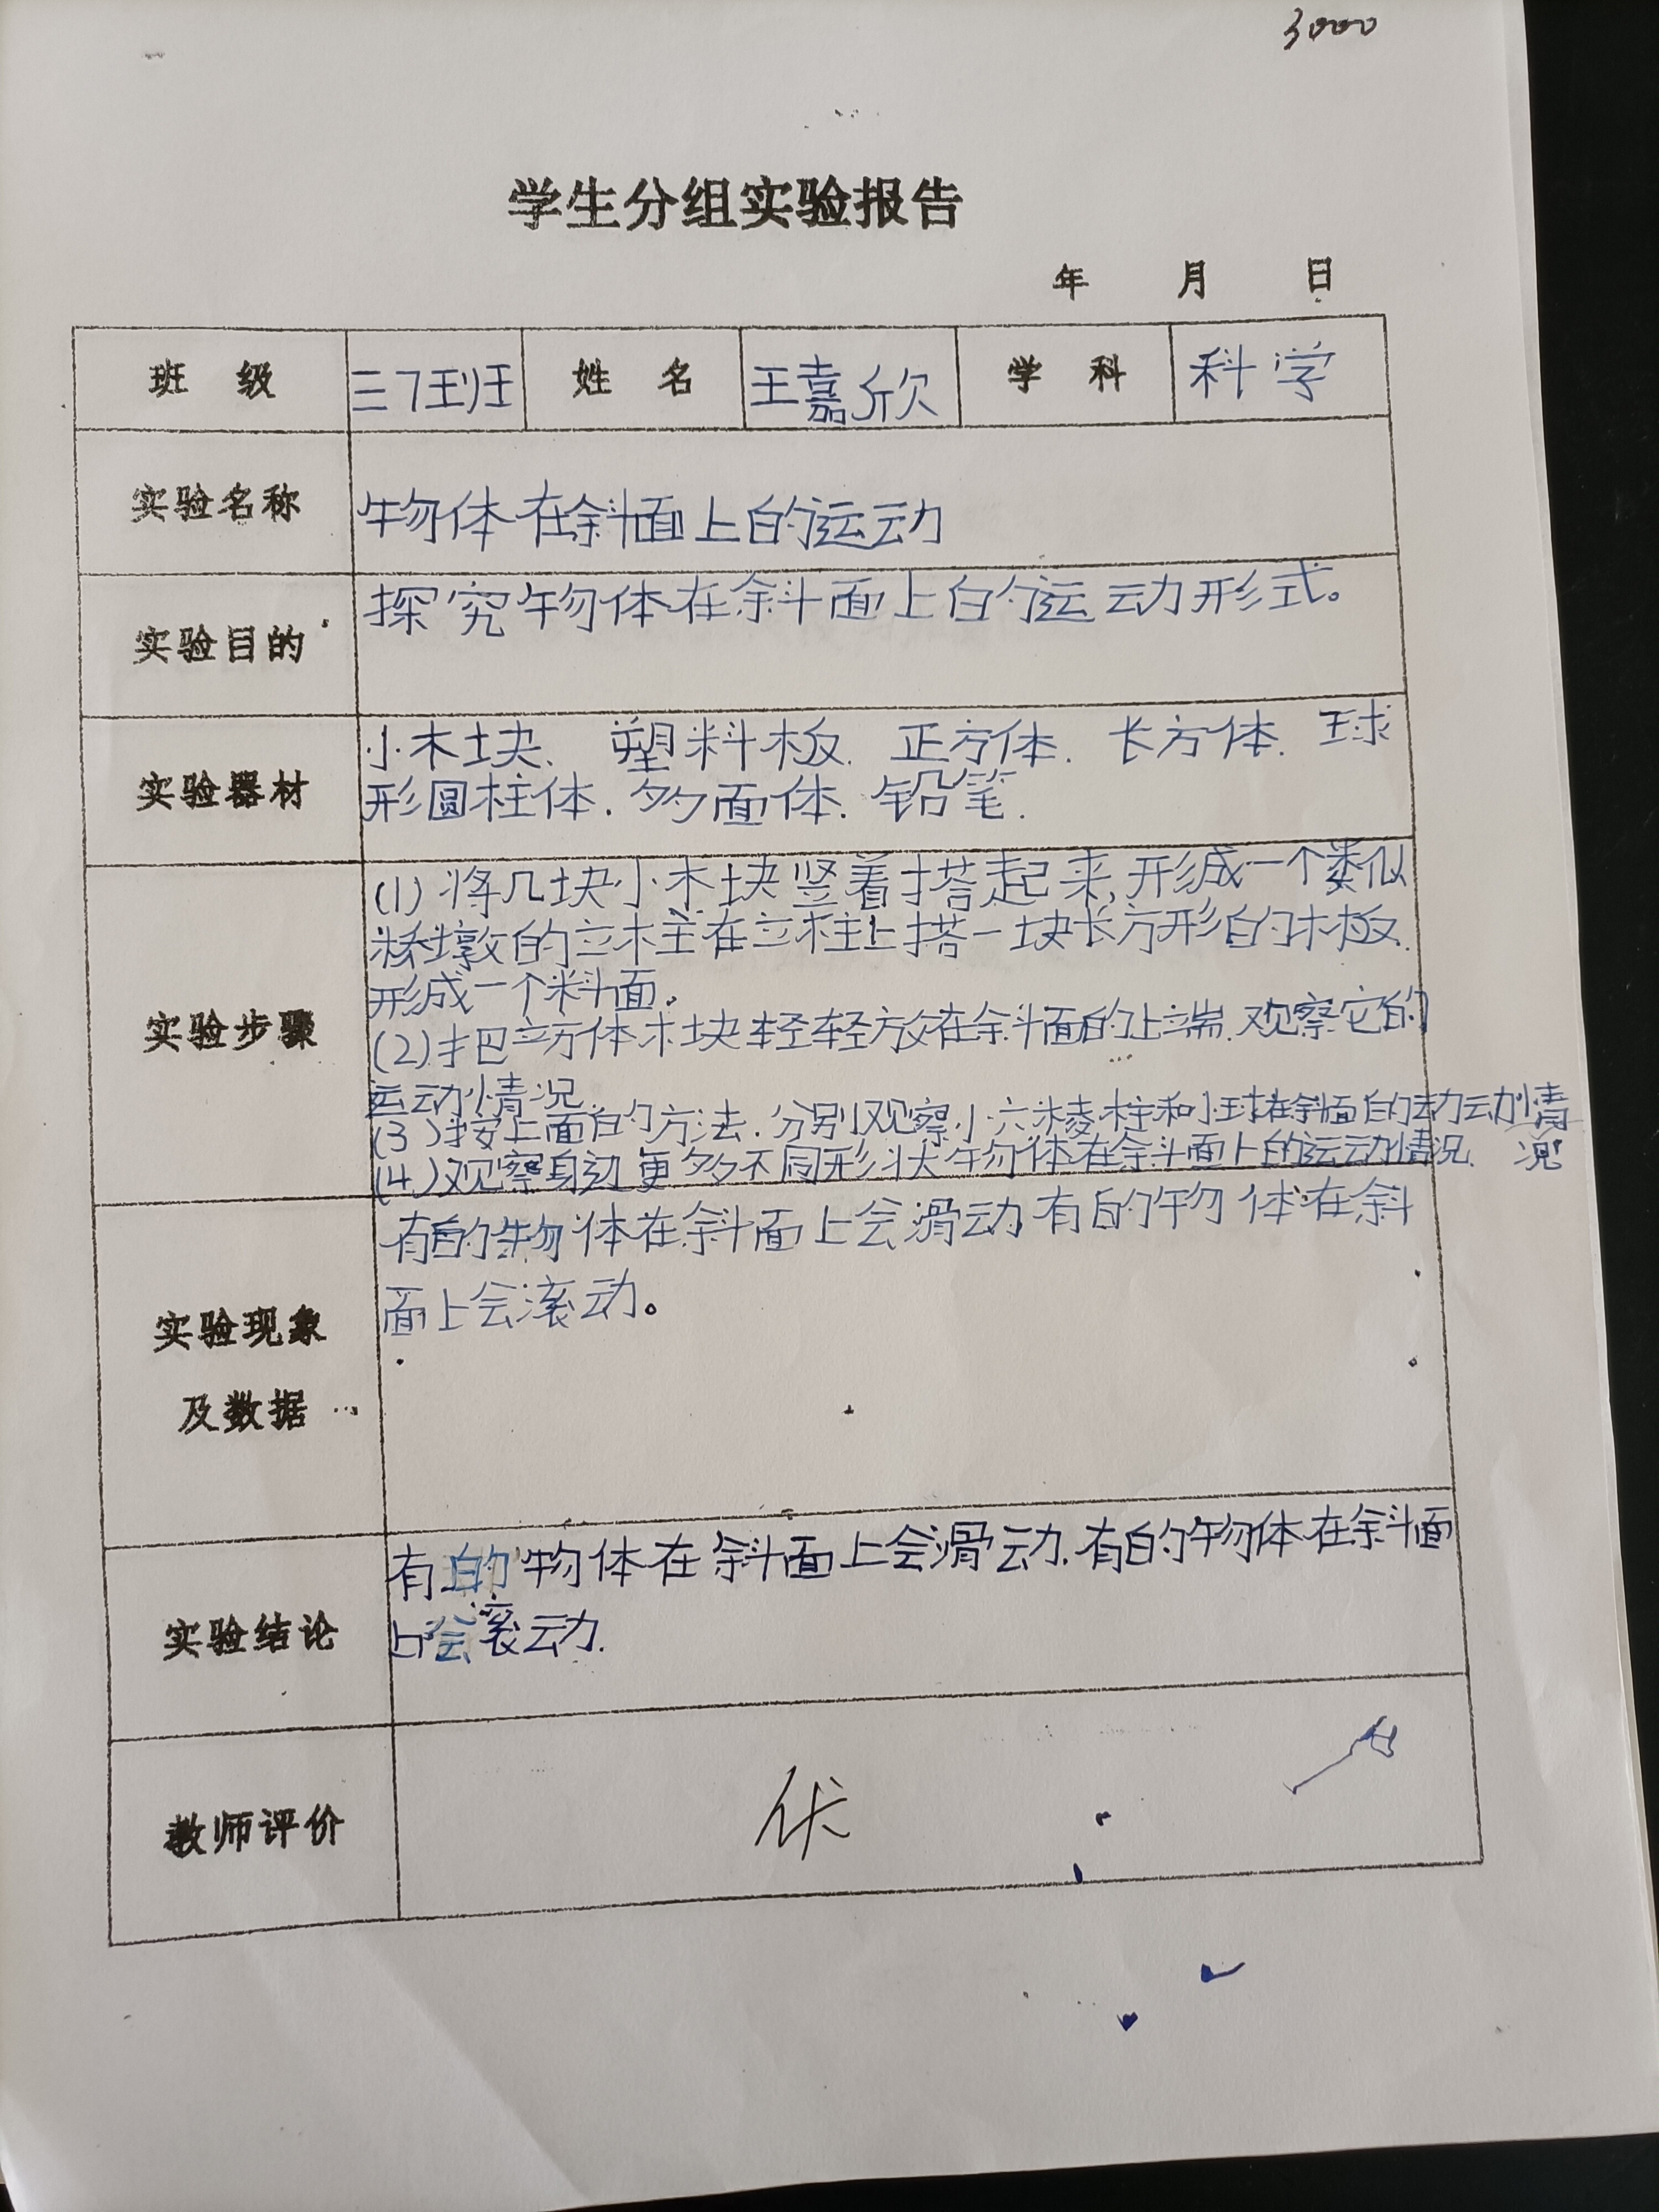 3000
学生分组实验报告
年 月 日
班 级 三7班 姓 名 王嘉欣 学 科 科学
实验名称 物体在斜面上的运动
实验目的 探究物体在斜面上的运动形式。
实验器材
小木块、塑料板.正方体.长方体.球
形圆柱体.多面体.铅笔.
实验步骤
(1)将几块小木块竖着搭起来,形成一个类似
桥墩的立柱在立柱上搭一块长方形的木板.
形成一个料面.
(2)把立方体木块轻轻放在斜面的上端.观察它的
运动情况.
(3)按上面的方法.分别观察小六棱柱和小球在斜面的动动情
况
(4)观察身边更多不同形状物体在斜面上的运动情况.
实验现象
及数据
有的物体在斜面上会滑动有的物体在斜
面上会滚动。
实验结论
有的物体在斜面上会滑动.有的物体在斜面
上会滚动.
教师评价 优